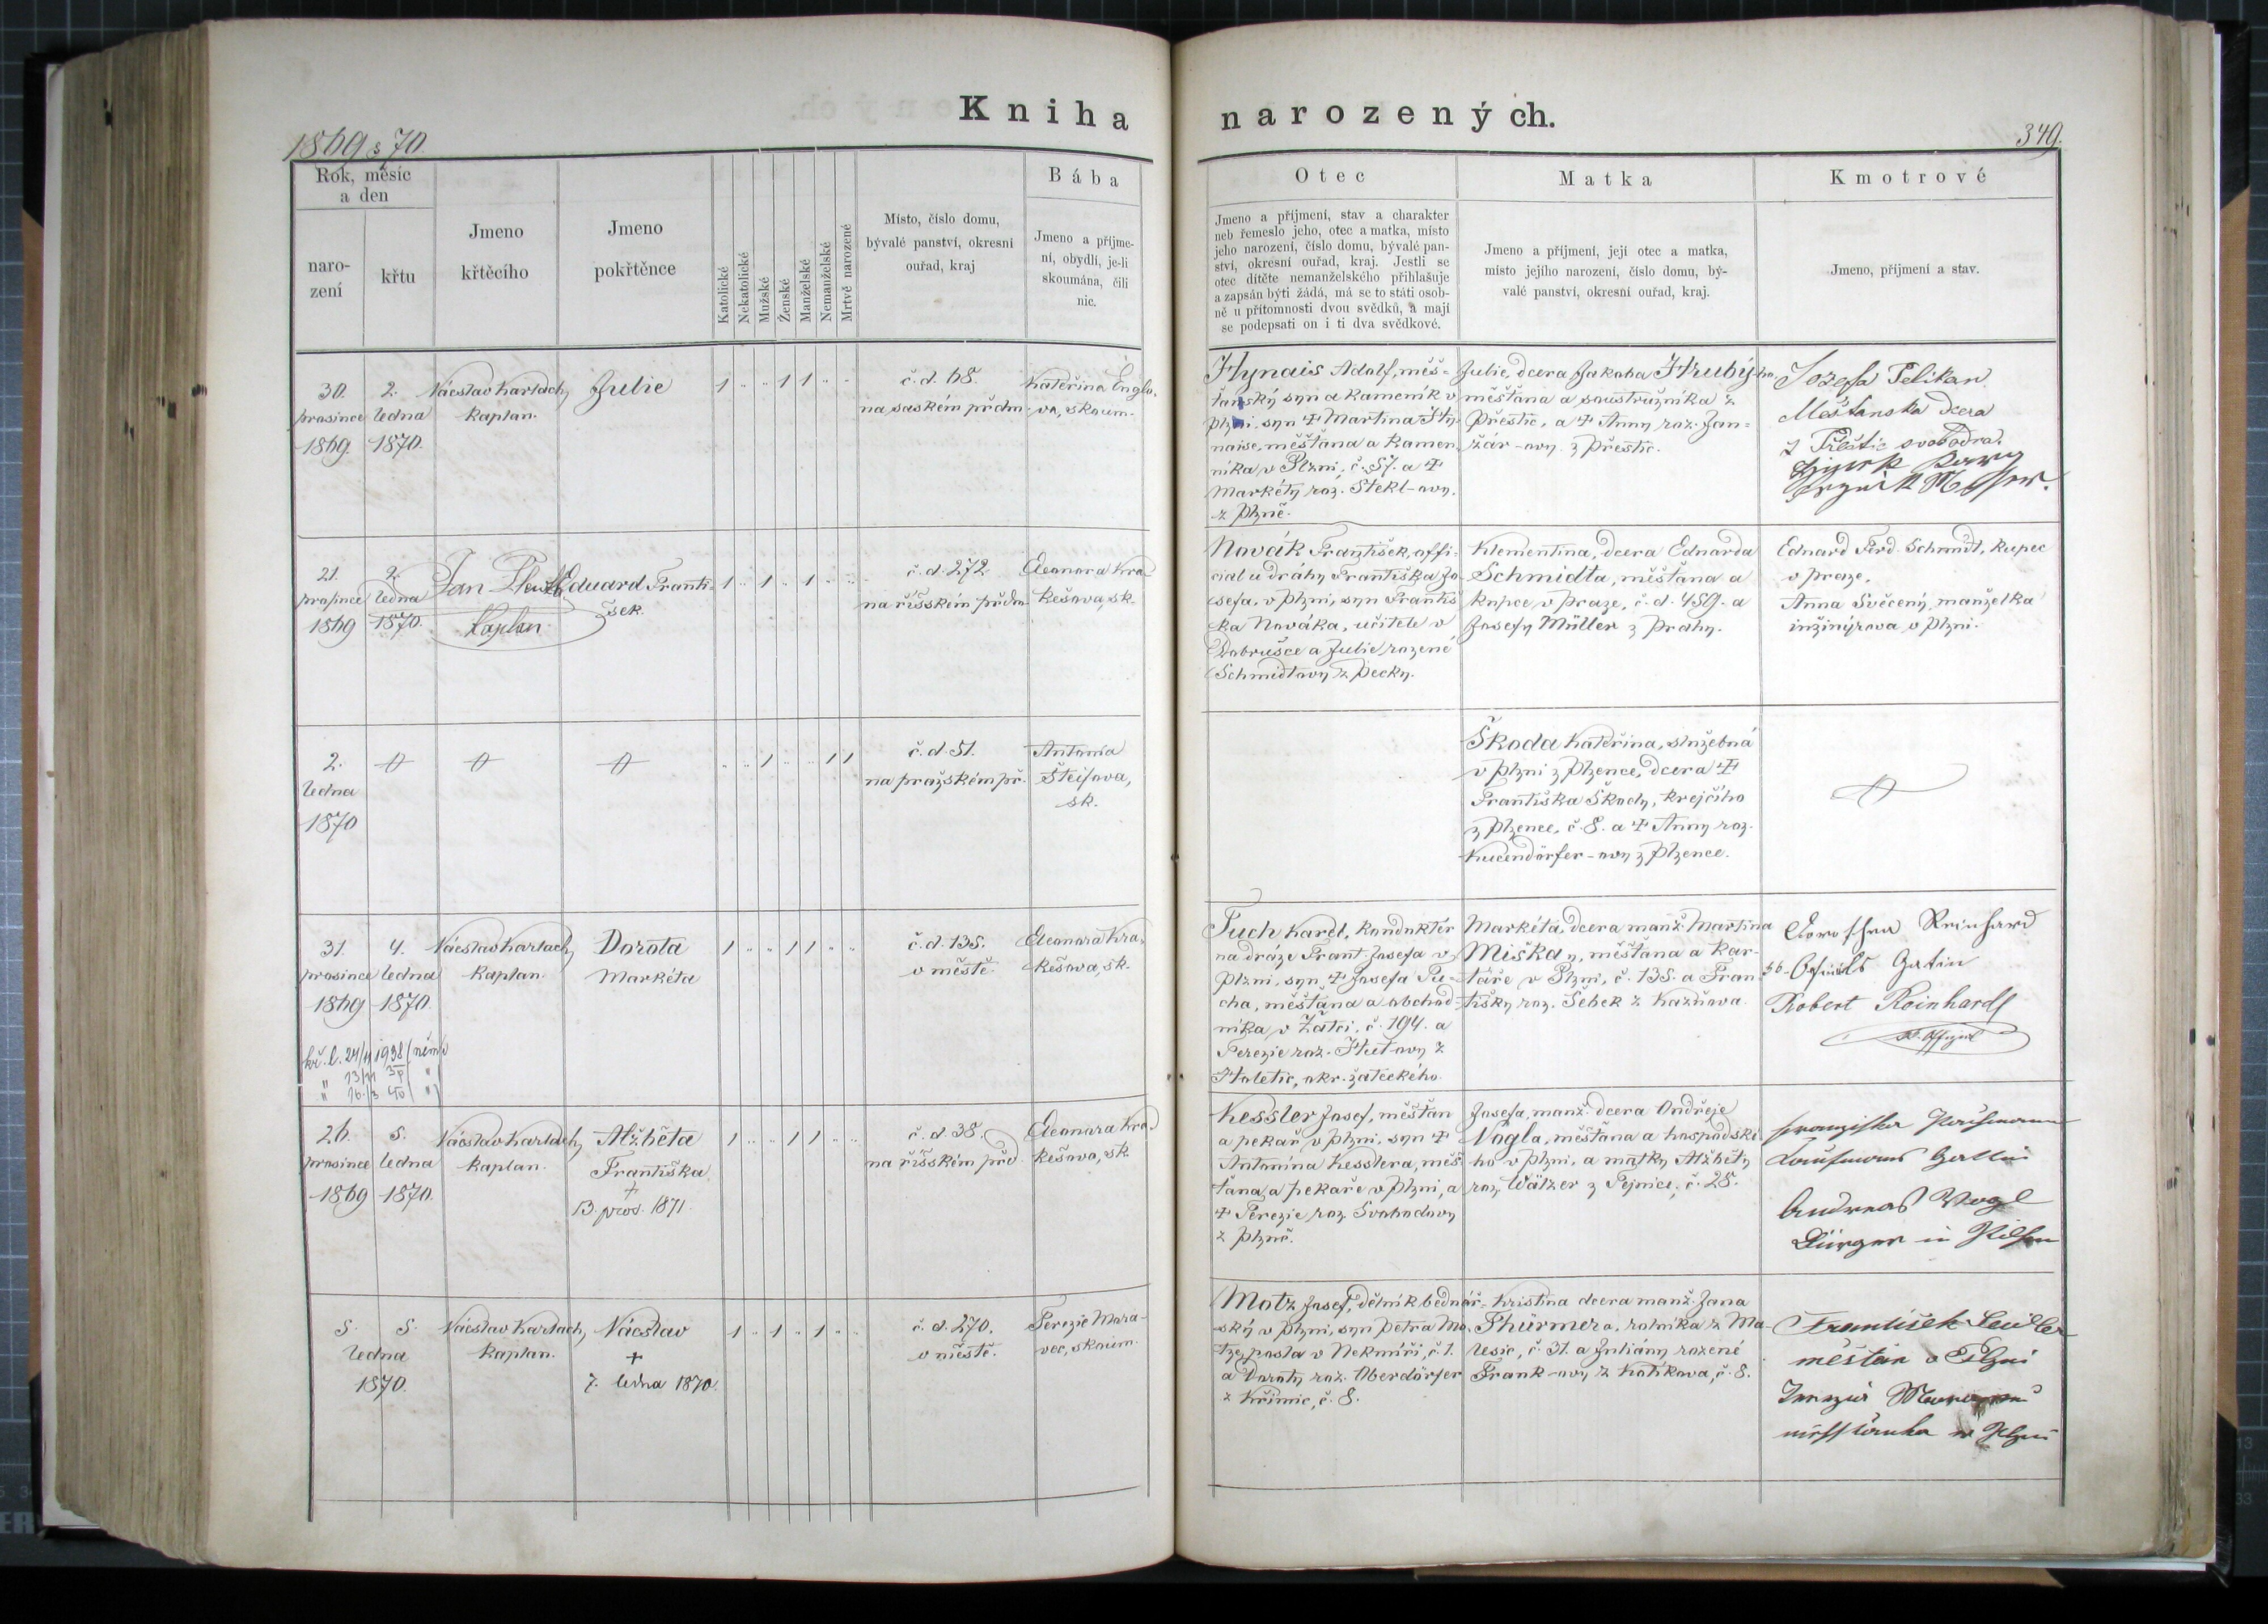 Kniha narozených.
1869 & 70.
349.
Rok, měsíc
a den
naro-
zení
křtu
Jmeno
křtěcího
Jmeno
pokřtěnce
Katolické
Nekatolické
Mužské
Ženské
Manželské
Nemanželské
Mrtvě narozené
Místo, číslo domu,
bývalé panství, okresní
ouřad, kraj
Bába
Jmeno a příjme-
ní, obydlí, je-li
skoumána, čili
nic.
Otec
Jmeno a příjmení, stav a charakter
neb řemeslo jeho, otec a matka, místo
jeho narození, číslo domu, bývalé pan-
ství, okresní ouřad, kraj. Jestli se
otec dítěte nemanželského přihlašuje
a zapsán býti žádá, má se to státi osob-
ně u přítomnosti dvou svědků, a mají
se podepsati on i ti dva svědkové.
Matka
Jmeno a příjmení, její otec a matka,
místo jejího narození, číslo domu, bý-
valé panství, okresní ouřad, kraj.
Kmotrové
Jmeno, příjmení a stav.
30.
prosince
1869.
2.
ledna
1870.
Václav Karlach,
kaplan.
Julie
1 " " 1 1 " "
č. d. 68.
na saském předm.
Kateřina Englo-
va, skoum.
Hynais Adolf, měš-
ťanský syn a kameník v
Plzni, syn † Martina Hy-
naise, měšťana a kamen-
níka v Plzni, č. 57. a †
Markéty roz. Stekl-ovy.
z Plzně.
Julie, dcera Jakoba Hrubýho,
měšťana a soustružníka z
Přeštic, a † Anny roz. Jan-
žár-ovy z Přeštic.
Jozefa Pelikan
Měšťanska dcera
z Přeštic svobodna.
21.
prosince
1869
2.
ledna
1870.
Jan
Kaplan
Eduard Franti-
šek.
1 " 1 " 1 " "
č. d. 272.
na říšském předm.
Eleonora Kra-
kešova, sk.
Novák František, offi-
cial u dráhy Františka Jo-
sefa, v Plzni, syn Františ-
ka Nováka, učitele v
Dobrušce a Julie rozené
Schmidtovy z Pecky.
Klementina, dcera Eduarda
Schmidta, měšťana a
kupce v Praze, č. d. 459. a
Josefy Müller z Prahy.
Eduard Ferd. Schmidt, kupec
v Praze.
Anna Svěcený, manželka
inžinýrova v Plzni.
2.
ledna
1870
" " 1 " " 1 1
č. d. 51.
na pražském př.
Antonia
Šteifova,
sk.
Škoda Kateřina, služebná
v Plzni z Plzence, dcera †
Františka Škody, krejčího
z Plzence, č. 8. a † Anny roz.
Kucendörfer-ovy z Plzence.
31.
prosince
1869
4.
ledna
1870.
Václav Karlach,
kaplan.
Dorota
Markéta
1 " " 1 1 " "
č. d. 135.
v městě.
Eleonora Kra-
kešova, sk.
Tuch Karel, konduktér
na dráze Frant. Josefa v
Plzni, syn † Josefa Tu-
cha, měšťana a obchod-
níka v Žatci, č. 194. a
Terezie roz. Hut-ovy z
Holetic, okr. žateckého.
Markéta, dcera manž. Martina
Mišky, měšťana a kar-
táře v Plzni, č. 135. a Fran-
tišky roz. Šebek z Kaznova.
Dorothea Reinhard
Robert Reinhard
26.
prosince
1869
5.
ledna
1870.
Václav Karlach,
kaplan.
Alžběta
Františka
†
13. pros. 1871.
1 " " 1 1 " "
č. d. 38.
na říšském před.
Eleonora Kra-
kešova, sk.
Kessler Josef, měšťan
a pekař v Plzni, syn †
Antonína Kesslera, měš-
ťana, a pekaře v Plzni, a
† Terezie roz. Svobodovy
z Plzně.
Josefa, manž. dcera Ondřeje
Vogla, měšťana a hospodské-
ho v Plzni, a matky Alžběty
roz. Wälzer z Tejnice, č. 28.
Andreas Vogl
Bürger in Pilsen
5.
ledna
1870.
5.
Václav Karlach,
kaplan.
Václav
†
7. ledna 1870.
1 " 1 " 1 " "
č. d. 270.
v městě.
Terezie Mora-
vec, skoum.
Motz Josef, dělník bednář-
ský v Plzni, syn Petra Mo-
tze, posla v Nekmíři, č. 1.
a Doroty roz. Oberdörfer
z Křimic, č. 8.
Kristina dcera manž. Jana
Thürmera, rolníka z Ma-
lesic, č. 31. a Juliány rozené
Frank-ovy z Kotíkova, č. 8.
František Seidler
měšťan v Plzni